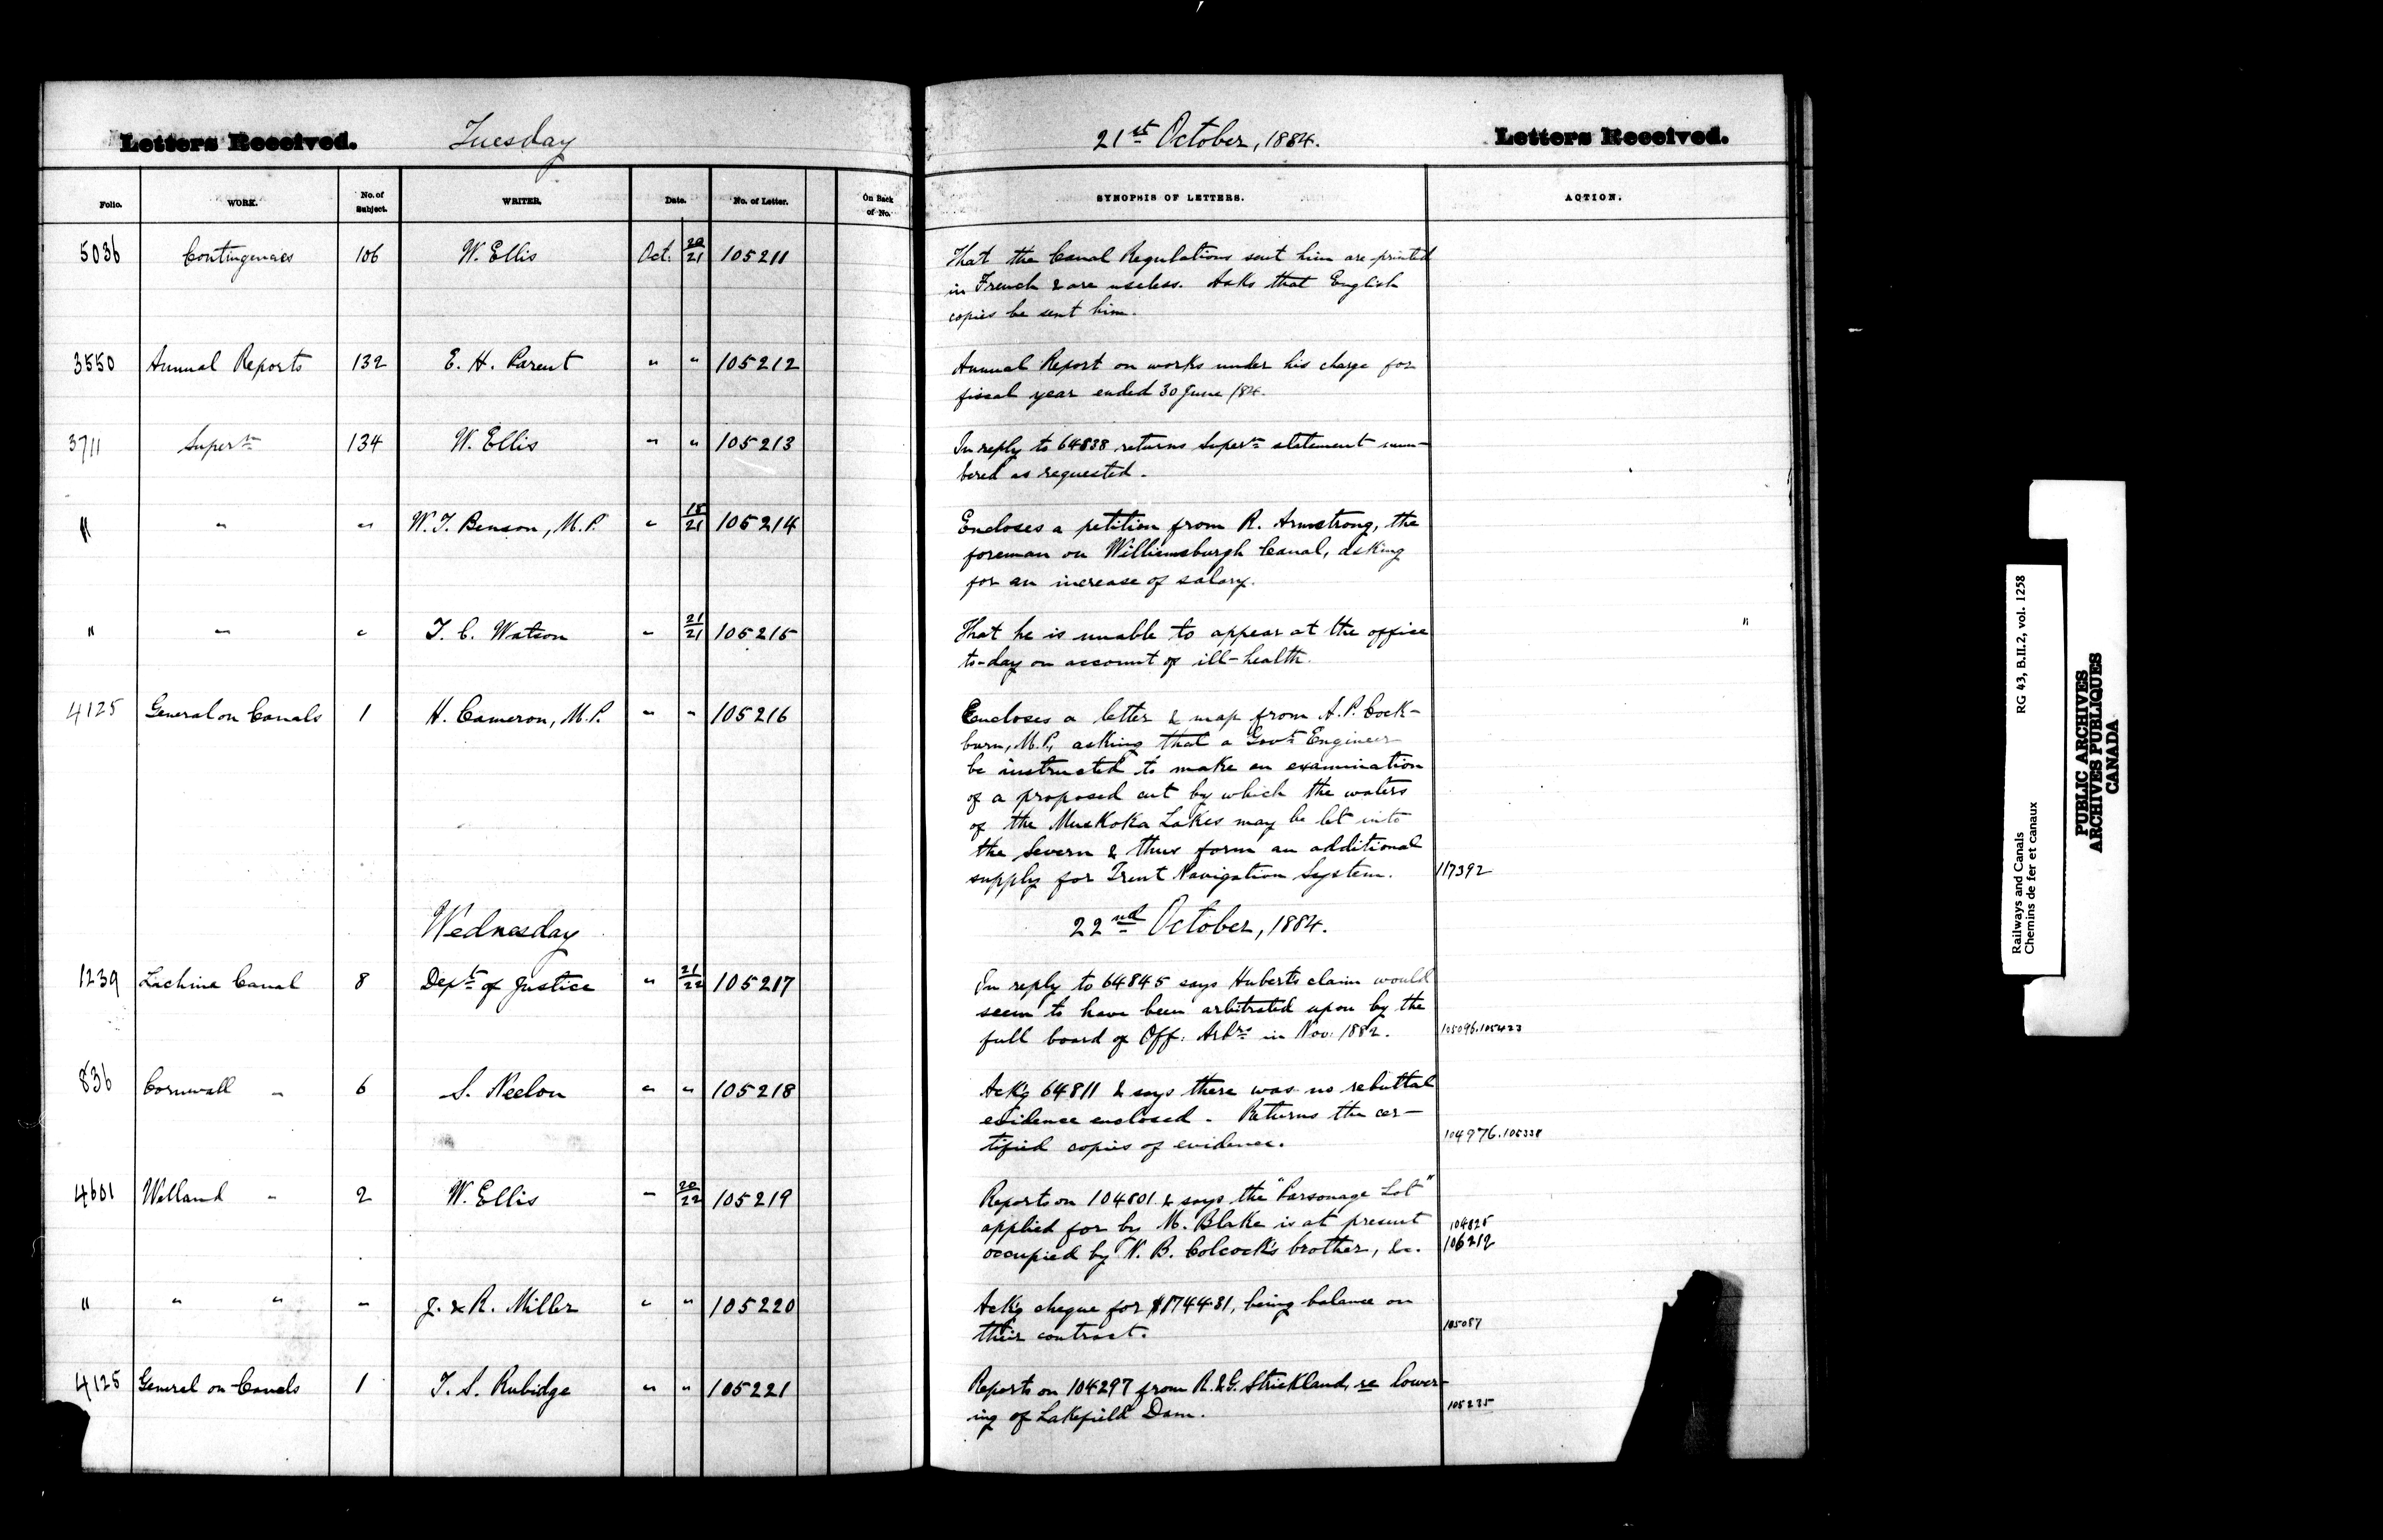 Letters Received. Tuesday 21st October, 1884. Letters Received.
Folio. WORK. No. of Subject. WRITER. Date. No. of Letter. On Back of No. SYNOPSIS OF LETTERS. ACTION.
5036 Contingencies 106 W. Ellis Oct. 20/21 105211 That the Canal Regulations sent him are printed
in French & are useless. Asks that English
copies be sent him.
3550 Annual Reports 132 E. H. Parent " " 105212 Annual Report on works under his charge for
fiscal year ended 30 June /84.
3711 Supertn 134 W. Ellis " " 105213 In reply to 64838 returns Supertn statement num-
bered as requested.
" " " W. T. Benson, M.P. " 18/21 105214 Encloses a petition from R. Armstrong, the
foreman on Williamsburgh Canal, asking
for an increase of salary.
" " " T. C. Watson " 21/21 105215 That he is unable to appear at the office
to-day on account of ill-health.
4125 General on Canals 1 H. Cameron, M.P. " " 105216 Encloses a letter & map from A. P. Cock-
burn, M.P., asking that a Govt Engineer
be instructed to make an examination
of a proposed cut by which the waters
of the Muskoka Lakes may be let into
the Severn & thus form an additional
supply for Trent Navigation System. 117392
Wednesday 22nd October, 1884.
1239 Lachine Canal 8 Dept of Justice " 21/22 105217 In reply to 64845 says Huberts claim would
seem to have been arbitrated upon by the
full board of Off. Arbrs in Nov. 1882. 105096.105423
836 Cornwall " 6 S. Neelon " " 105218 Ackg 64811 & says there was no rebuttal
evidence enclosed. Returns the cer-
tified copies of evidence. 104976.105338
4601 Welland " 2 W. Ellis " 20/22 105219 Reports on 104801 & says the "Parsonage Lot"
applied for by M. Blake is at present 104825
occupied by W. B. Colcock's brother, &c. 106212
" " " " J. & R. Miller " " 105220 Ackg cheque for $1744.31, being balance on
their contract. 105087
4125 General on Canals 1 T. S. Rubidge " " 105221 Reports on 104297 from R. & G. Strickland, re lower-
ing of Lakefield Dam. 105235
Railways and Canals RG 43, B.II.2, vol. 1258
Chemins de fer et canaux
PUBLIC ARCHIVES
ARCHIVES PUBLIQUES
CANADA